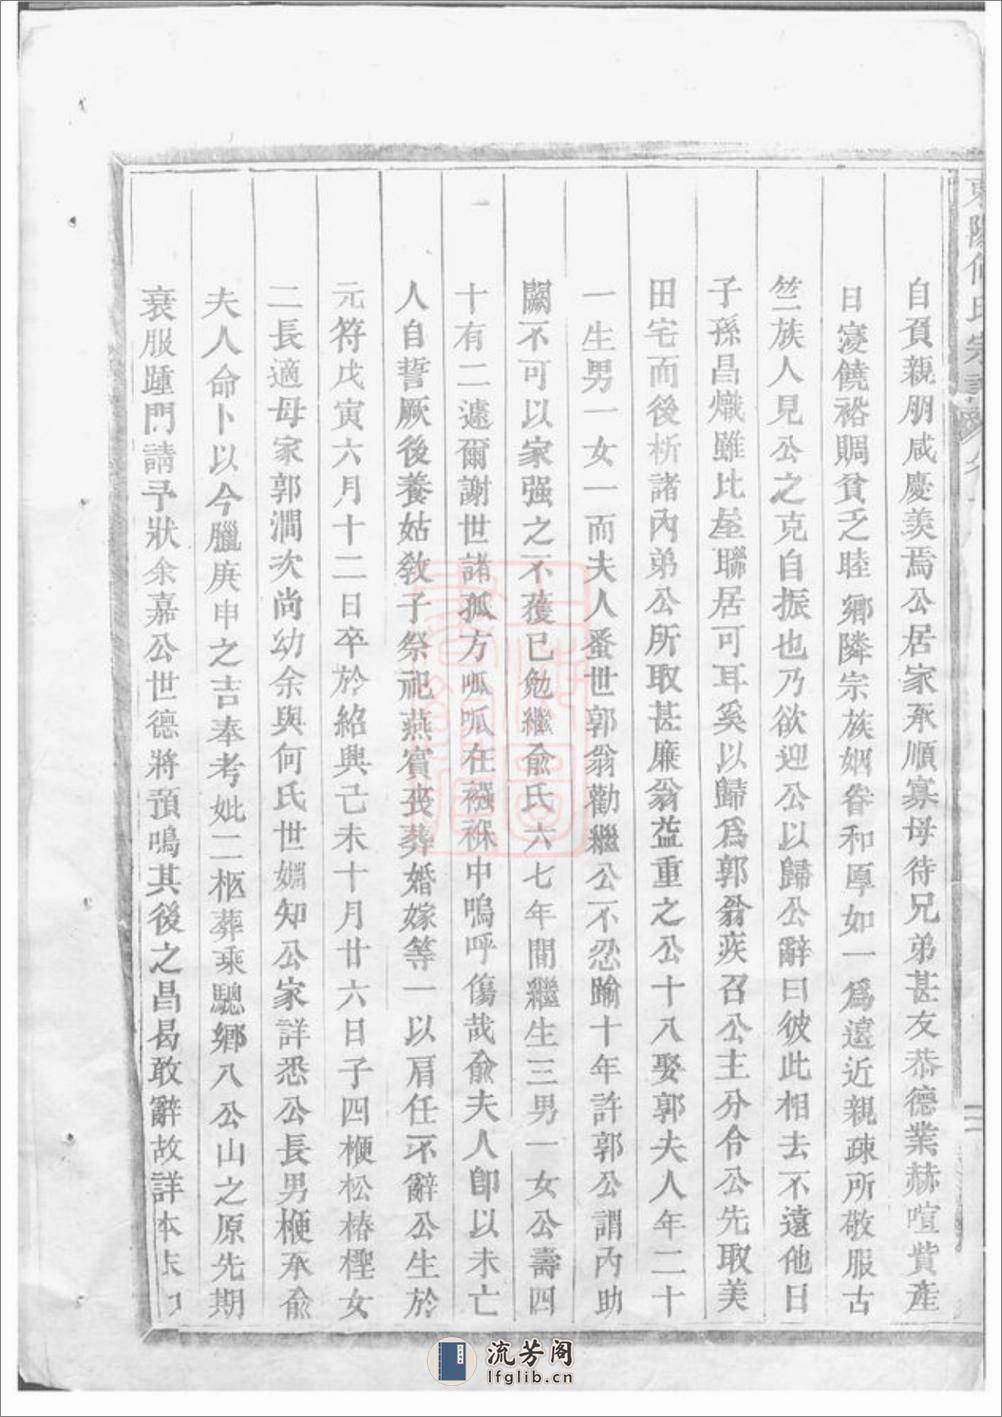 東陽何氏宗譜
自負親朋咸慶美焉公居家承順寡母待兄弟甚友恭德業赫喧貲產
日寖饒裕賙貧乏睦鄉隣宗族姻眷和厚如一為遠近親疎所敬服古
竺族人見公之克自振也乃欲迎公以歸公辭曰彼此相去不遠他日
子孫昌熾雖比屋聯居可耳奚以歸為郭翁疾召公主分令公先取美
田宅而後析諸內弟公所取甚廉翁益重之公十八娶郭夫人年二十
一生男一女一而夫人蚤世郭翁勸繼公不忍踰十年許郭公謂內助
闕不可以家强之不獲已勉繼俞氏六七年間繼生三男一女公壽四
十有二遽爾謝世諸孤方呱呱在襁褓中嗚呼傷哉俞夫人卽以未亡
人自誓厥後養姑敎子祭祀燕賓喪葬婚嫁等一以肩任不辭公生於
元符戊寅六月十二日卒於紹興己未十月廿六日子四楩松椿檉女
二長適母家郭澗次尚幼余與何氏世姻知公家詳悉公長男楩承俞
夫人命卜以今臘庚申之吉奉考妣二柩葬乘驄鄉八公山之原先期
衰服踵門請予狀余嘉公世德將預鳴其後之昌曷敢辭故詳本末
流芳阁
lfglib.cn